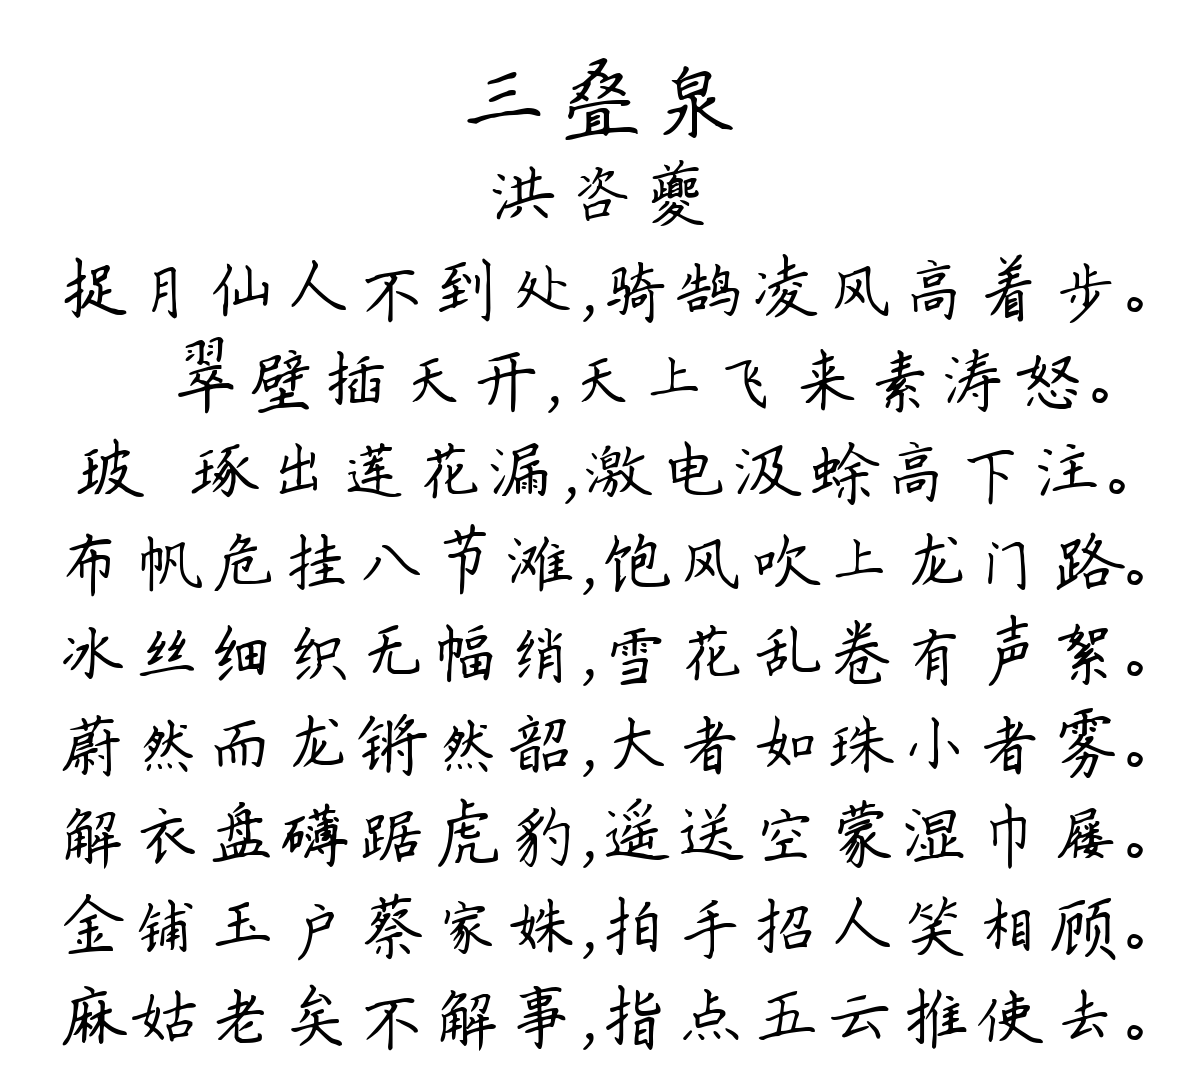 三叠泉
洪咨夔
捉月仙人不到处,骑鹄凌风高着步。
翠壁插天开,天上飞来素涛怒。
玻 琢出莲花漏,激电汲蜍高下注。
布帆危挂八节滩,饱风吹上龙门路。
冰丝细织无幅绡,雪花乱卷有声絮。
蔚然而龙锵然韶,大者如珠小者雾。
解衣盘礴踞虎豹,遥送空蒙湿巾屦。
金铺玉户蔡家姝,拍手招人笑相顾。
麻姑老矣不解事,指点五云推使去。